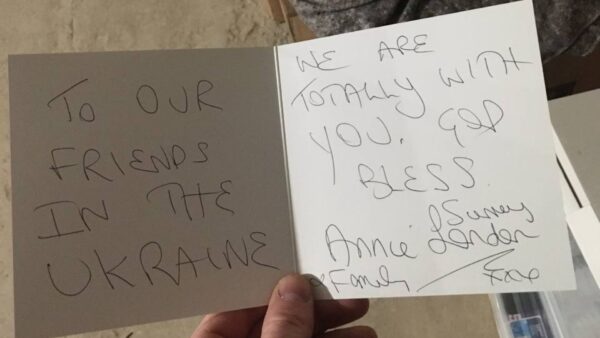 TO OUR
FRIENDS
IN THE
UKRAINE
WE ARE
TOTALLY WITH
YOU. GOD
BLESS
Annie
& Family
Surrey
London
xxx